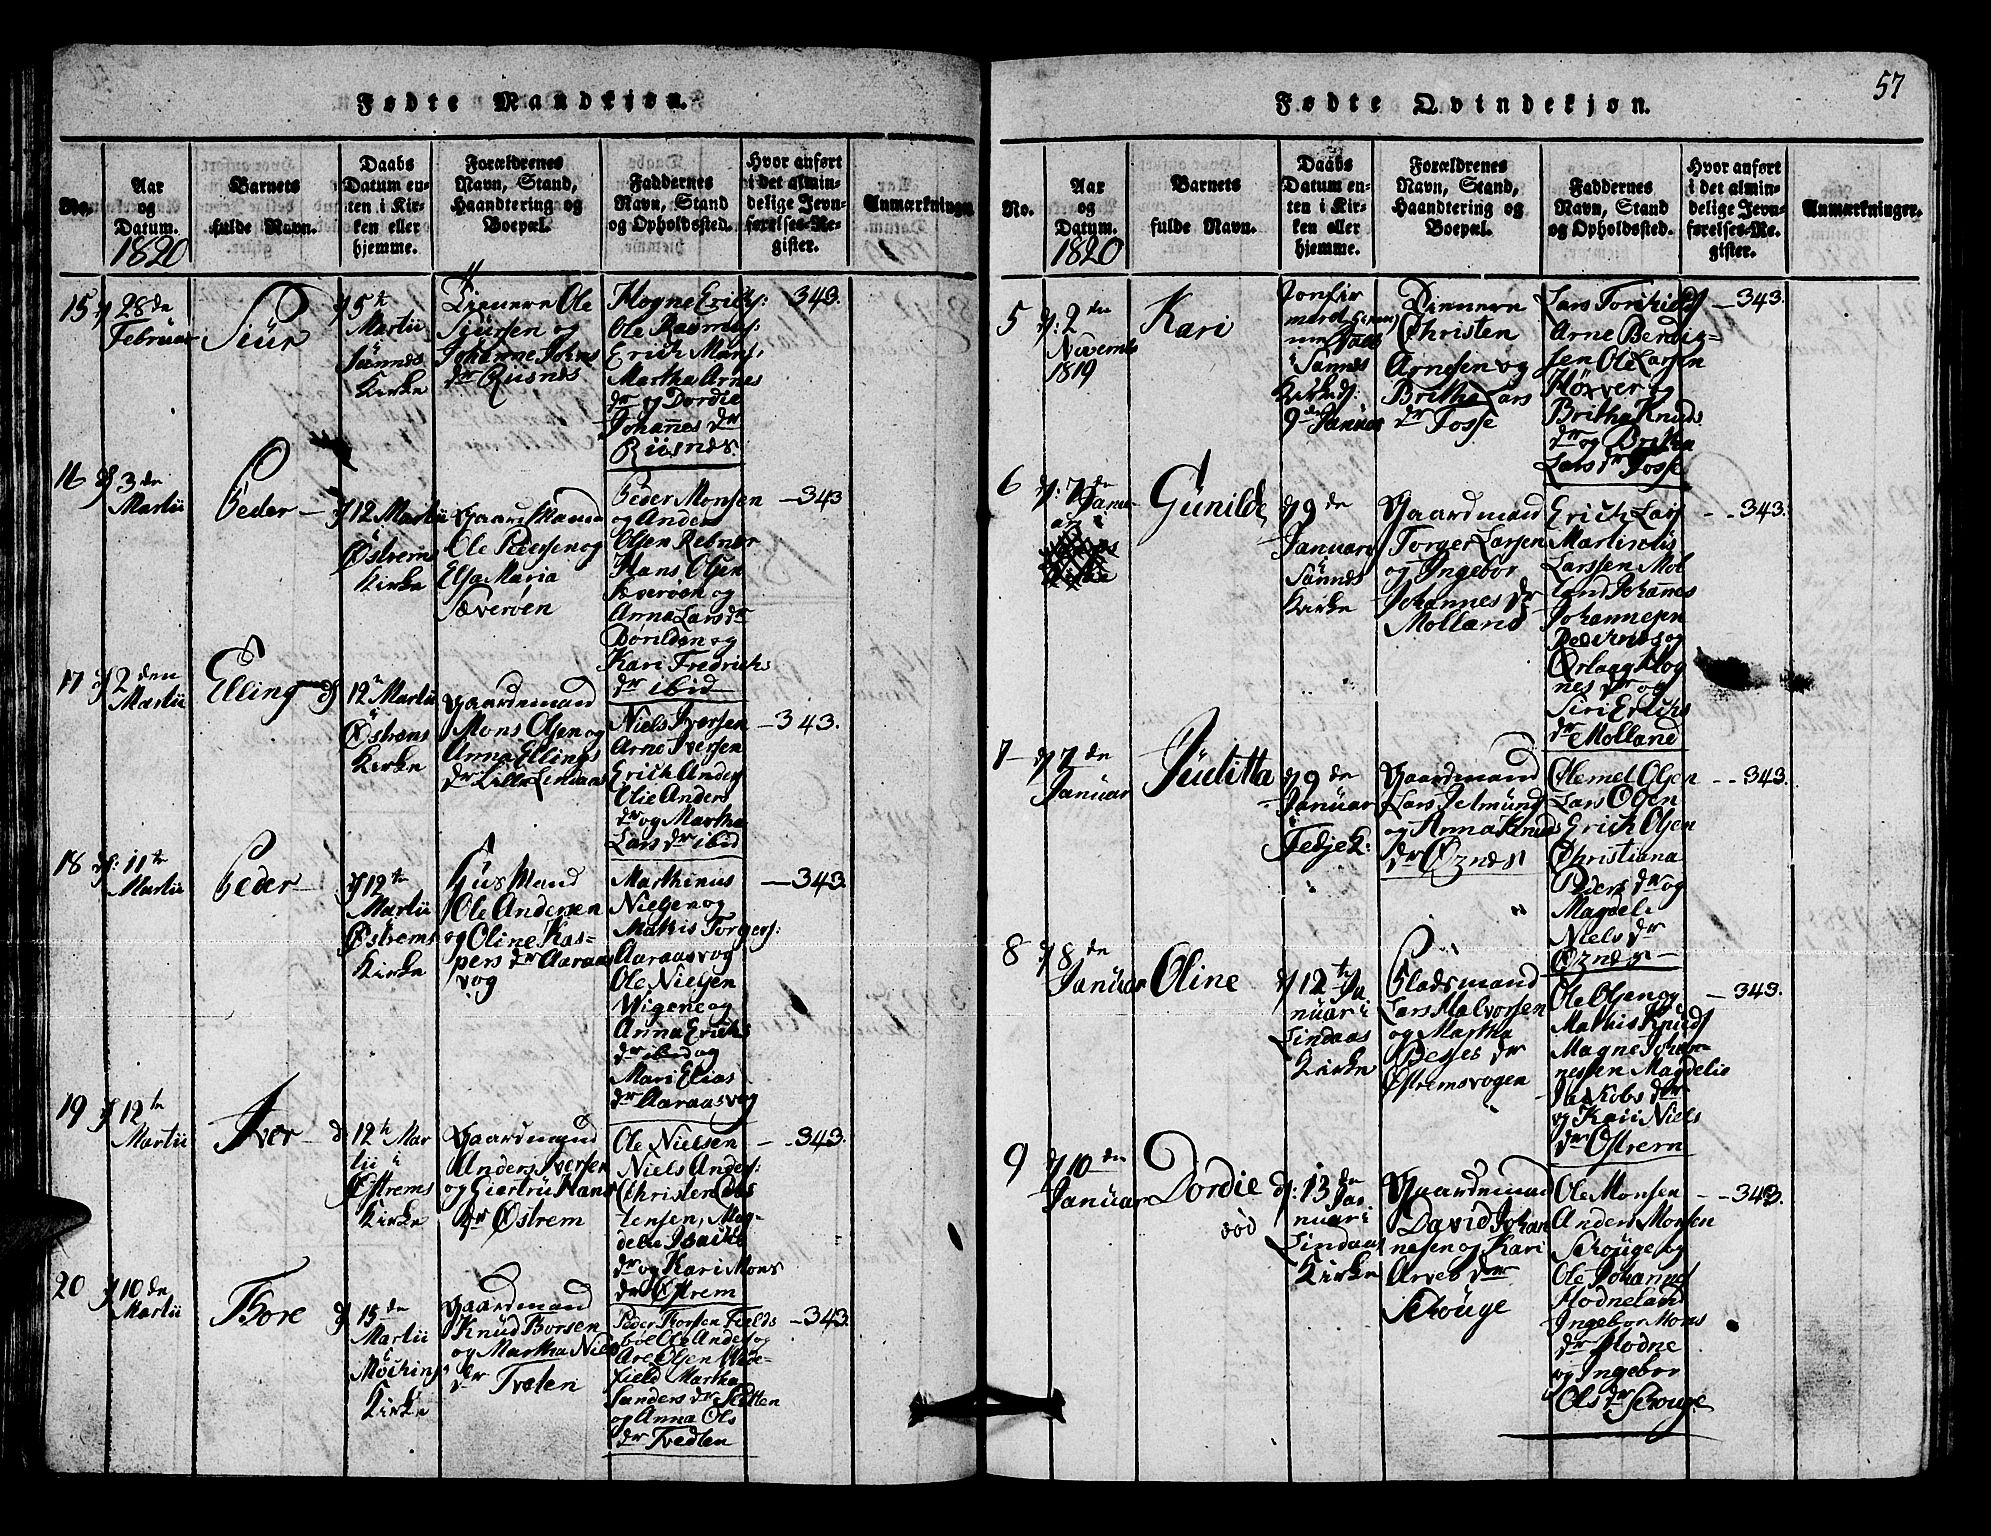 Fødte Mandkjøn.
No.
Aar
og
Datum.
1820
Barnets
fulde Navn.
Daabs
Datum en-
ten i Kir-
ken eller
hjemme.
Forældrenes
Navn, Stand,
Haandtering og
Boepæl.
Faddernes
Navn, Stand
og Opholdssted.
Hvor anført
i det almin-
delige Jevn-
førelses-Re-
gister.
Anmærkninger
15
28de
Februar
Siur
5te
Martii
i
Sannes
Kirke
Ole
Siursen og
Johanne Johns
dr Riisnes
Hogne Erichs:
Ole Rasmus:
Erich Mans:
Martha Arnes
dr og Dordie
Johannes dr
Riisnes
343.
16
3de
Martii
Peder
12 Martii
i
Østrems
Kirke
Gaardmand
Ole Pedersen og
Elsa Maria
Sæveröen
Peder Monsen
og Anders
Olsen Rebnor
Hans Olsen
Sæveröen og
Anna Lars dr
Børilden og
Kari Fredrichs
dr ibid
343
17
2den
Martii
Elling
12 Martii
i
Østrems
Kirke
Gaardmand
Mons Olsen og
Anna Ellings
dr Lille Lindaas
Niels Iversen
Arne Iversen
Erich Anders
Olie Anders
dr og Martha
Lars dr ibid
343.
18
11te
Martii
Peder
12te
Martii
Østrems
Kirke
Husmand
Ole Andersen
og Oline Kas-
pers dr Aaraas
vog
Marthinus
Nielsen og
Mathis Torgers:
Aaraasvog
Ole Nielsen
Wigene og
Anna Erichs
dr ibid og
Mari Elias
dr Aaraasvog
343.
19
12te
Martii
Iver
12te Mar
tii i
Østrems
Kirke
Gaardmand
Anders Iversen
og Giertru Hans
dr Østrem
Ole Nielsen
Niels Anders:
Christen Cas
tensen, Mag-
deli Isacks
dr og Kari Mons
dr Østrem
343.
20
10de
Martii
Thore
15de
Martii
i
Möcking
Kirke
Gaardmand
Knud Borsen
og Martha Niels
dr Tveten
Peder Thorsen Fields
böe Ole Anders og
Are Olsen Wide-
field Martha
Sanders dr Sletten
og Anna Ols
dr Tvedten
343.
57
Fødte Qvindekjøn.
No.
Aar
og
Datum.
1820
Barnets
fulde Navn.
Daabs
Datum en-
ten i Kir-
ken eller
hjemme.
Forældrenes
Navn, Stand,
Haandtering og
Boepæl.
Faddernes
Navn, Stand
og Opholdssted.
Hvor anført
i det almin-
delige Jevn-
førelses-Re-
gister.
Anmærkninger.
5
d: 2den
Novemb
1819
Kari
Confir
meret hiem
me Daab
i Sannes
Kirke d:
9de Januar
Christen
Arnesen og
Britha Lars
dr Fosse
Lars Torchilds
Arne Berdig-
sen Ole Larsen
Høyver og
Britha Knuds
dr og Britha
Lars dr Fosse
343.
6
d: 7de
Janu
ar i
Gunilde
9de
Januari
Sannes
Kirke
Gaardmand
Torger Larsen
og Ingebor
Johannes dr
Molland
Erich Lars
Martinus
Larssen Mol
land Johannes
Johannesen
Pedernes og
Ørlaag Hog
nes dr og
Siri Erichs
dr Molland
343.
7
7de
Januar
Julitta
9de
Januar
i
Fedje K:
Gaardmand
Lars Jelmund
og Anna Knuds
dr Øznes
Olemel Olsen
Lars Olsen
Erich Olsen
Christiana
Peders dr og
Magdeli
Niels dr
Øznes
343.
8
8de
Januar
Oline
12te Ja
nuar i
Lindaas
Kirke
Pladsmand
Lars Halvorsen
og Martha
Berges dr
Østremsvogen
Ole Olsen og
Mathis Knuds
Magne Johan-
nessen Magdelie
Jackobs dr
og Kari Niels
dr Østrem
343.
9
10de
Januar
Dordie
død
d: 13de
Ja
nuar i
Lindaas
Kirke
Gaardmand
David Johan
nesen og Kari
Arves dr
Schouge
Ole Monsen
Anders Monsen
Schouge og
Ole Johannes
Hodneland
Ingebor Mons
dr Hodne
og Ingebor
Ols dr Schouge
343.